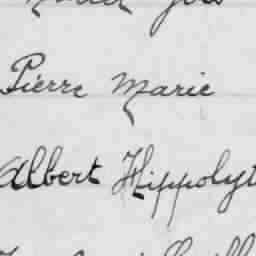 Pierre Marie
Albert Hippolyt